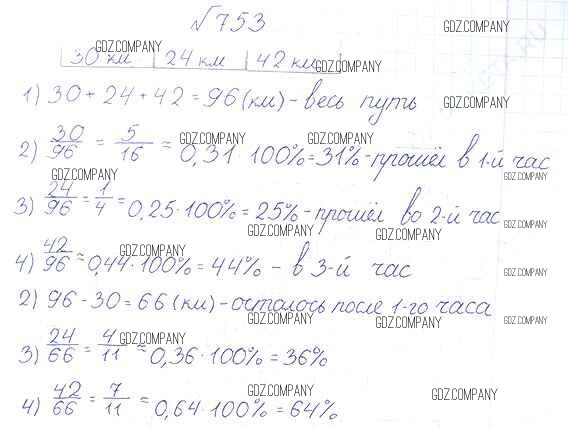 №753 GDZ.COMPANY
GDZ.COMPANY
30 км | 24 км | 42 км GDZ.COMPANY
1) 30 + 24 + 42 = 96 (км) - весь путь GDZ.COMPANY
GDZ.COMPANY GDZ.COMPANY
2) 30/96 = 5/16 = 0,31 · 100% = 31% - прошёл в 1-й час
GDZ.COMPANY GDZ.COMPANY
3) 24/96 = 1/4 = 0,25 · 100% = 25% - прошёл во 2-й час GDZ.COMPANY
GDZ.COMPANY GDZ.COMPANY
GDZ.COMPANY
4) 42/96 = 0,44 · 100% = 44% - в 3-й час GDZ.COMPANY
2) 96 - 30 = 66 (км) - осталось после 1-го часа
GDZ.COMPANY GDZ.COMPANY GDZ.COMPANY
GDZ.COMPANY
3) 24/66 = 4/11 = 0,36 · 100% = 36%
GDZ.COMPANY GDZ.COMPANY
4) 42/66 = 7/11 = 0,64 · 100% = 64%